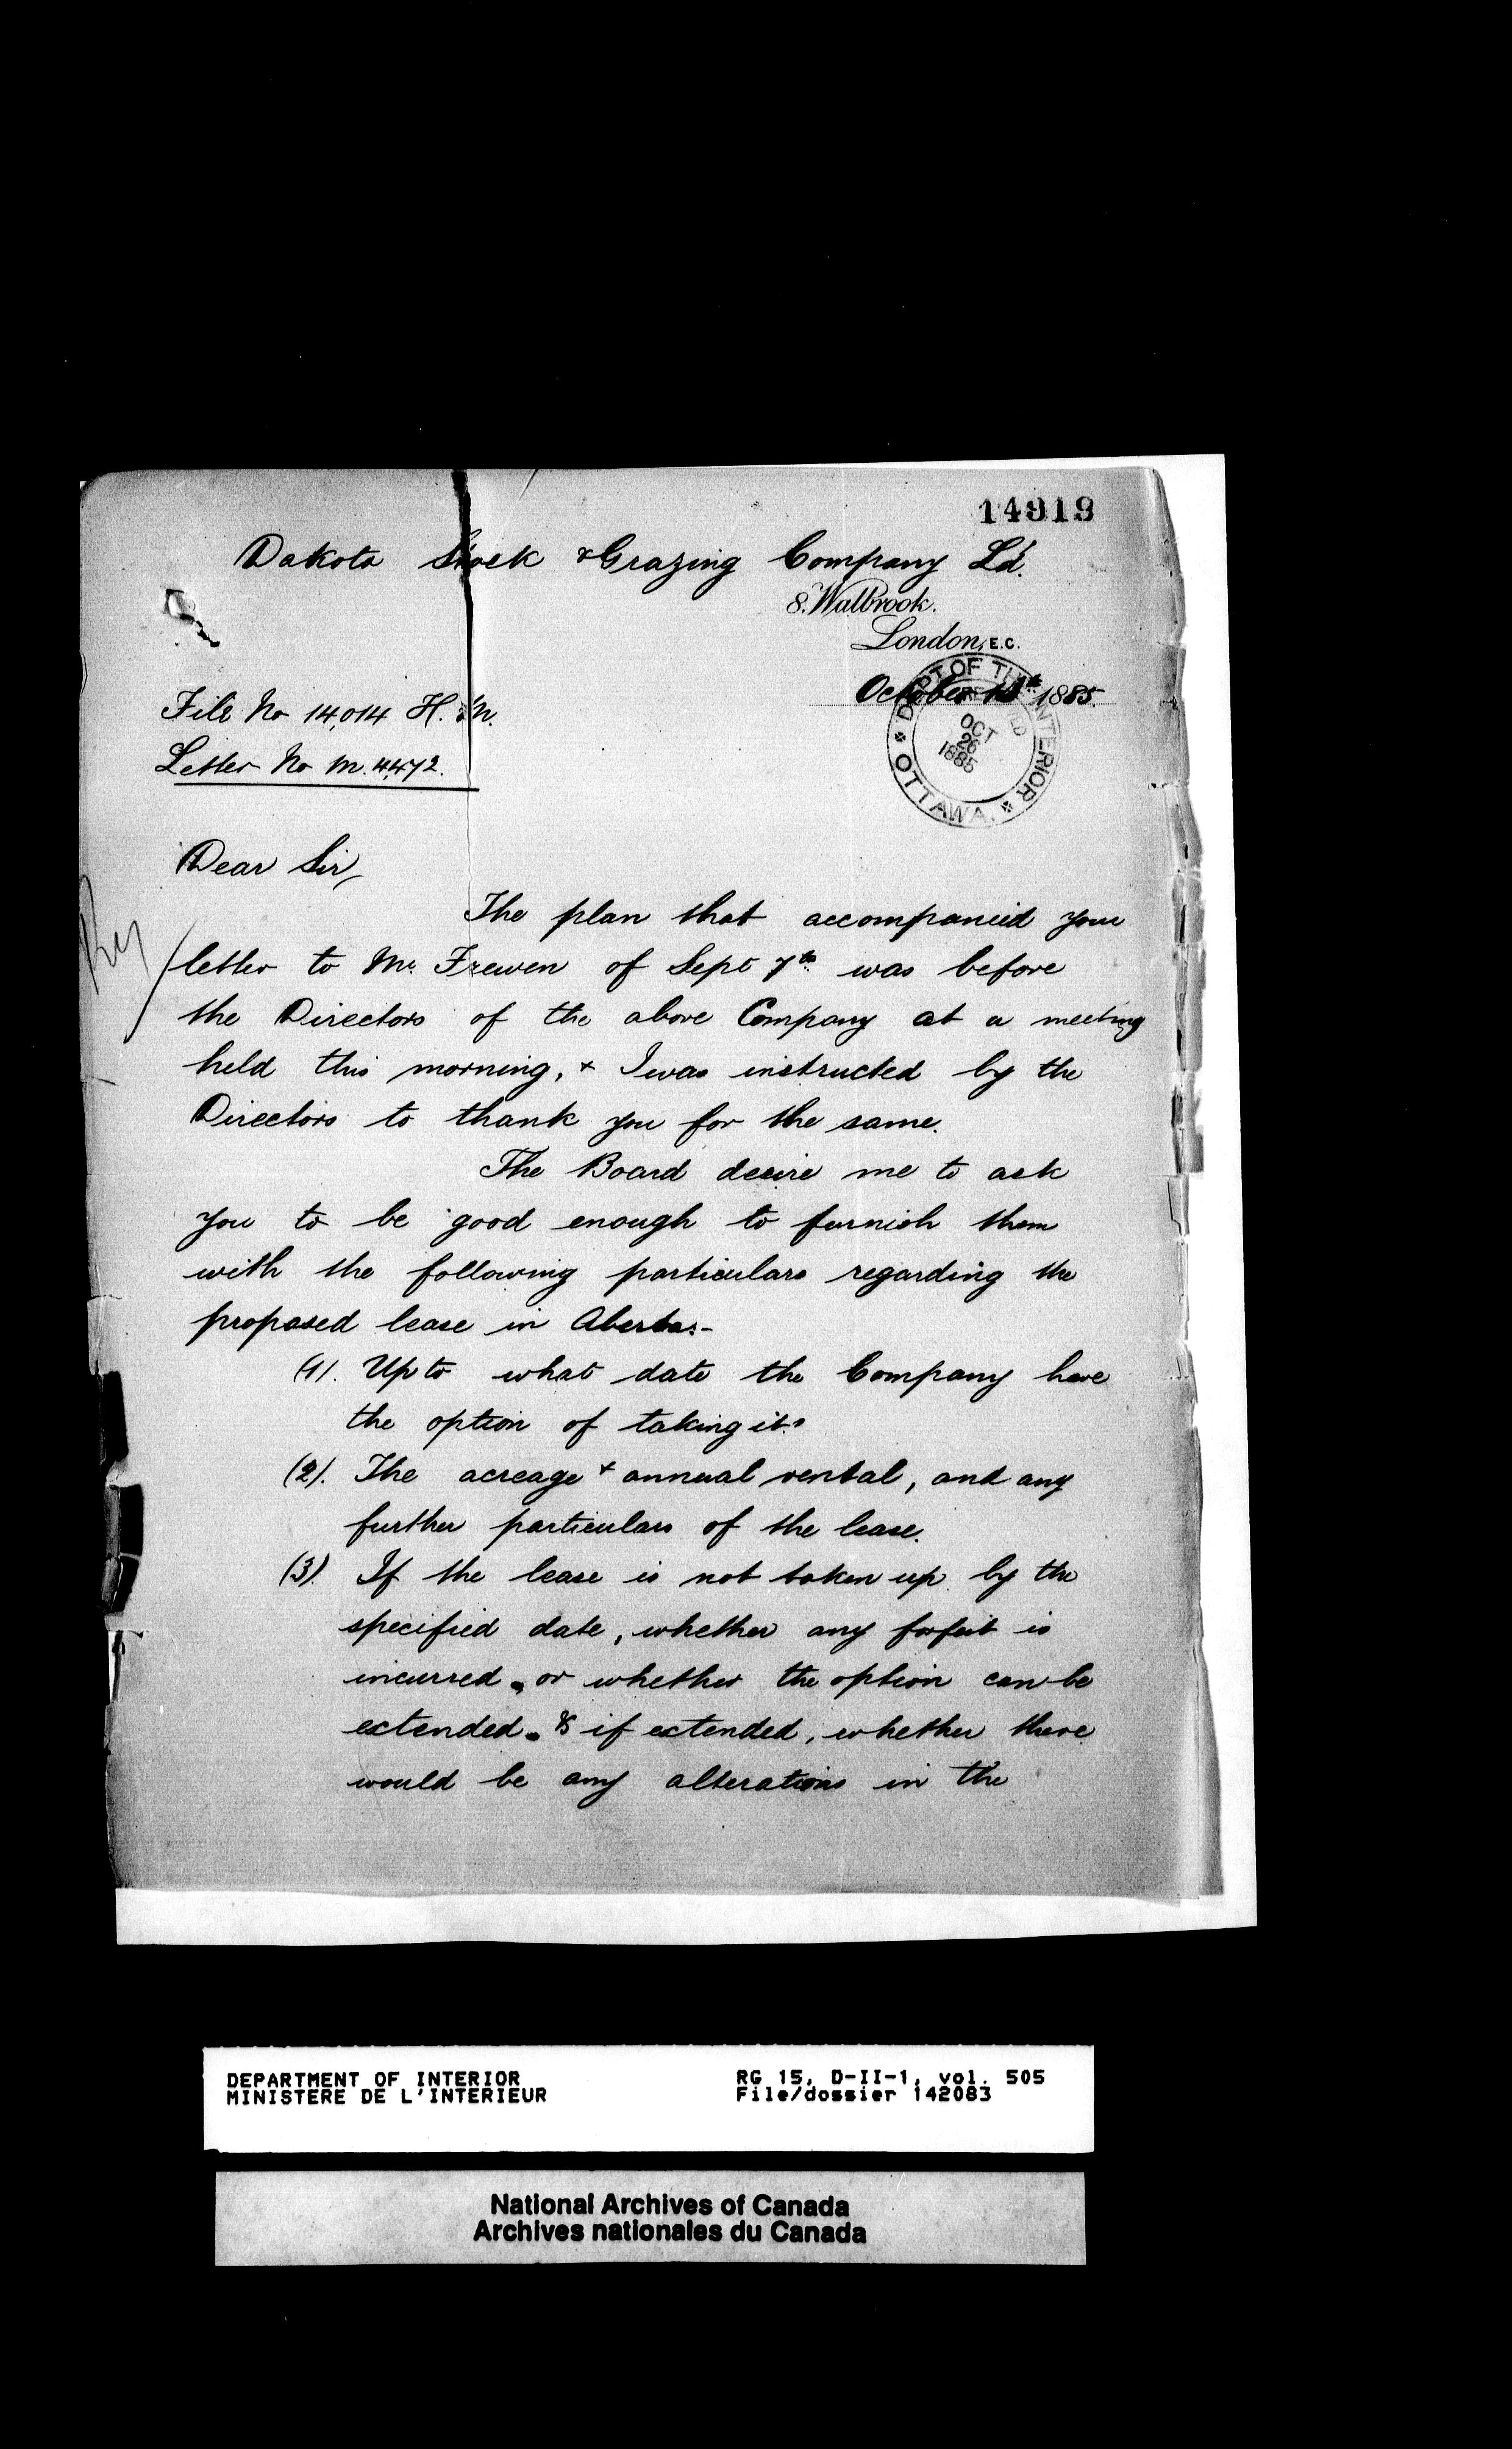 14919
Dakota Stock & Grazing Company Ld.
8. Walbrook.
London, E.C.
October 1885.
DEPT OF THE INTERIOR
OTTAWA.
OCT
26
1885
File No 14,014 H.
Letter No M. 4,472.
Dear Sir,
The plan that accompanied your
letter to Mr. Frewen of Sept 7th was before
the Directors of the above Company at a meeting
held this morning, & I was instructed by the
Directors to thank you for the same.
The Board desire me to ask
you to be good enough to furnish them
with the following particulars regarding the
proposed lease in Aberta:-
(1). Up to what date the Company have
the option of taking it.
(2). The acreage & annual rental, and any
further particulars of the lease.
(3). If the lease is not taken up by the
specified date, whether any forfeit is
incurred, or whether the option can be
extended. & if extended, whether there
would be any alterations in the
DEPARTMENT OF INTERIOR
MINISTERE DE L'INTERIEUR
RG 15, D-II-1, vol. 505
File/dossier 142083
National Archives of Canada
Archives nationales du Canada